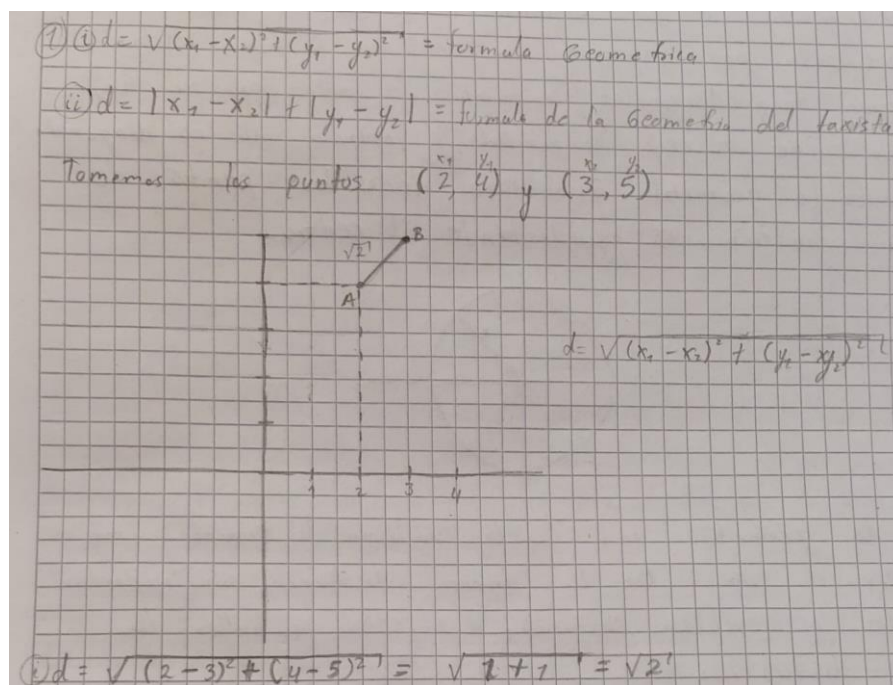 1) i) d = √(x₁ - x₂)² + (y₁ - y₂)² = formula Geometrica
ii) d = |x₁ - x₂| + |y₁ - y₂| = formula de la Geometria del taxista
x₁ y₁ x₂ y₂
Tomemos los puntos (2, 4) y (3, 5)
√2 B
A
d = √(x₁ - x₂)² + (y₁ - xy₂)²
1 2 3 4
i) d = √(2-3)² + (4-5)² = √1+1 = √2